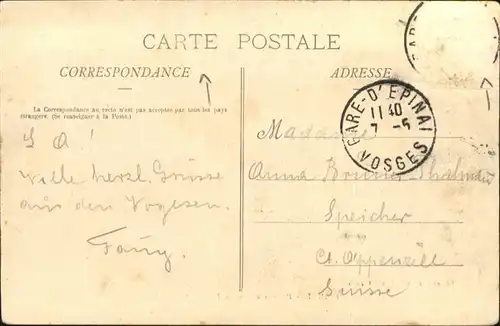 CARTE POSTALE
CORRESPONDANCE
ADRESSE
La Correspondance au recto n'est pas acceptée par tous les pays
étrangers. (Se renseigner à la Poste.)
GARE-D'EPINAL
11 40
7 -5
VOSGES
L A!
herzl. Grüsse
aus den Vogesen.
Madame
Anna
Speicher
Ct. Appenzell
Suisse